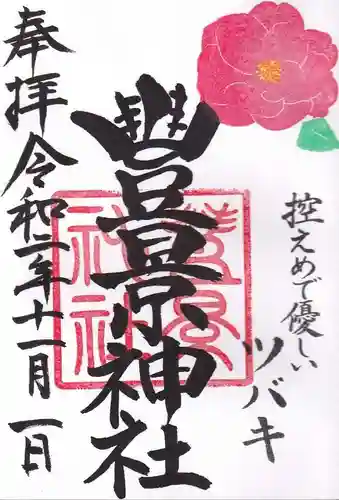 控えめで優しい
ツバキ
豐景神社
奉拝令和二年十一月一日